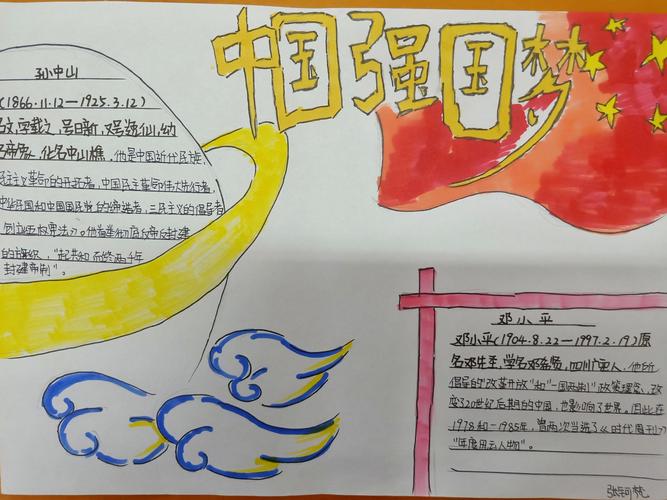 中国强国梦
孙中山
(1866.11.12—1925.3.12)
名文,字载之,号日新,又号逸仙,幼
名帝象,化名中山樵,他是中国近代民族
民主主义革命的开拓者,中国民主革命伟大先行者,
中华民国和中国国民党的缔造者,三民主义的倡导者
创立五权宪法》。他首举彻底反帝反封建
的旗帜,"起共和而终两千年
封建帝制"。
邓小平
邓小平(1904.8.22—1997.2.19)原
名邓先圣,学名邓希贤,四川广安人,他所
倡导的"改革开放"和"一国两制"政策理念,改
变了20世纪后期的中国,也影响了世界。因此在
1978和一1985年,曾两次当选了《时代周刊》
"年度风云人物"。